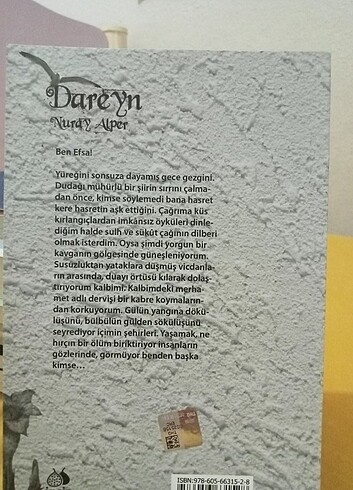 Dareyn
Nurdy Alper
Ben Efsal
Yüreğini sonsuza dayamış gece gezgini.
Dudağı mühürlü bir şiirin sırrını çalma-
dan önce, kimse söylemedi bana hasret
kere hasretin aşk ettiğini. Çağrıma küs
kırlangıçlardan imkânsız öyküleri dinle-
diğim halde sulh ve sükût çağının dilberi
olmak isterdim. Oysa şimdi yorgun bir
kavganın gölgesinde güneşleniyorum.
Susuzluktan yataklara düşmüş vicdanla-
rın arasında, duayı örtüsü kılarak dolaş-
tırıyorum kalbimi. Kalbimdeki merha-
met adlı dervişi bir kabre koymaların-
dan korkuyorum. Gülün yangına dökü-
lüşünü, bülbülün gülden sökülüşünü
seyrediyor içimin şehirleri. Yaşamak, ne
hırçın bir ölüm biriktiriyor insanların
gözlerinde, görmüyor benden başka
kimse...
ISBN:978-605-66315-2-8